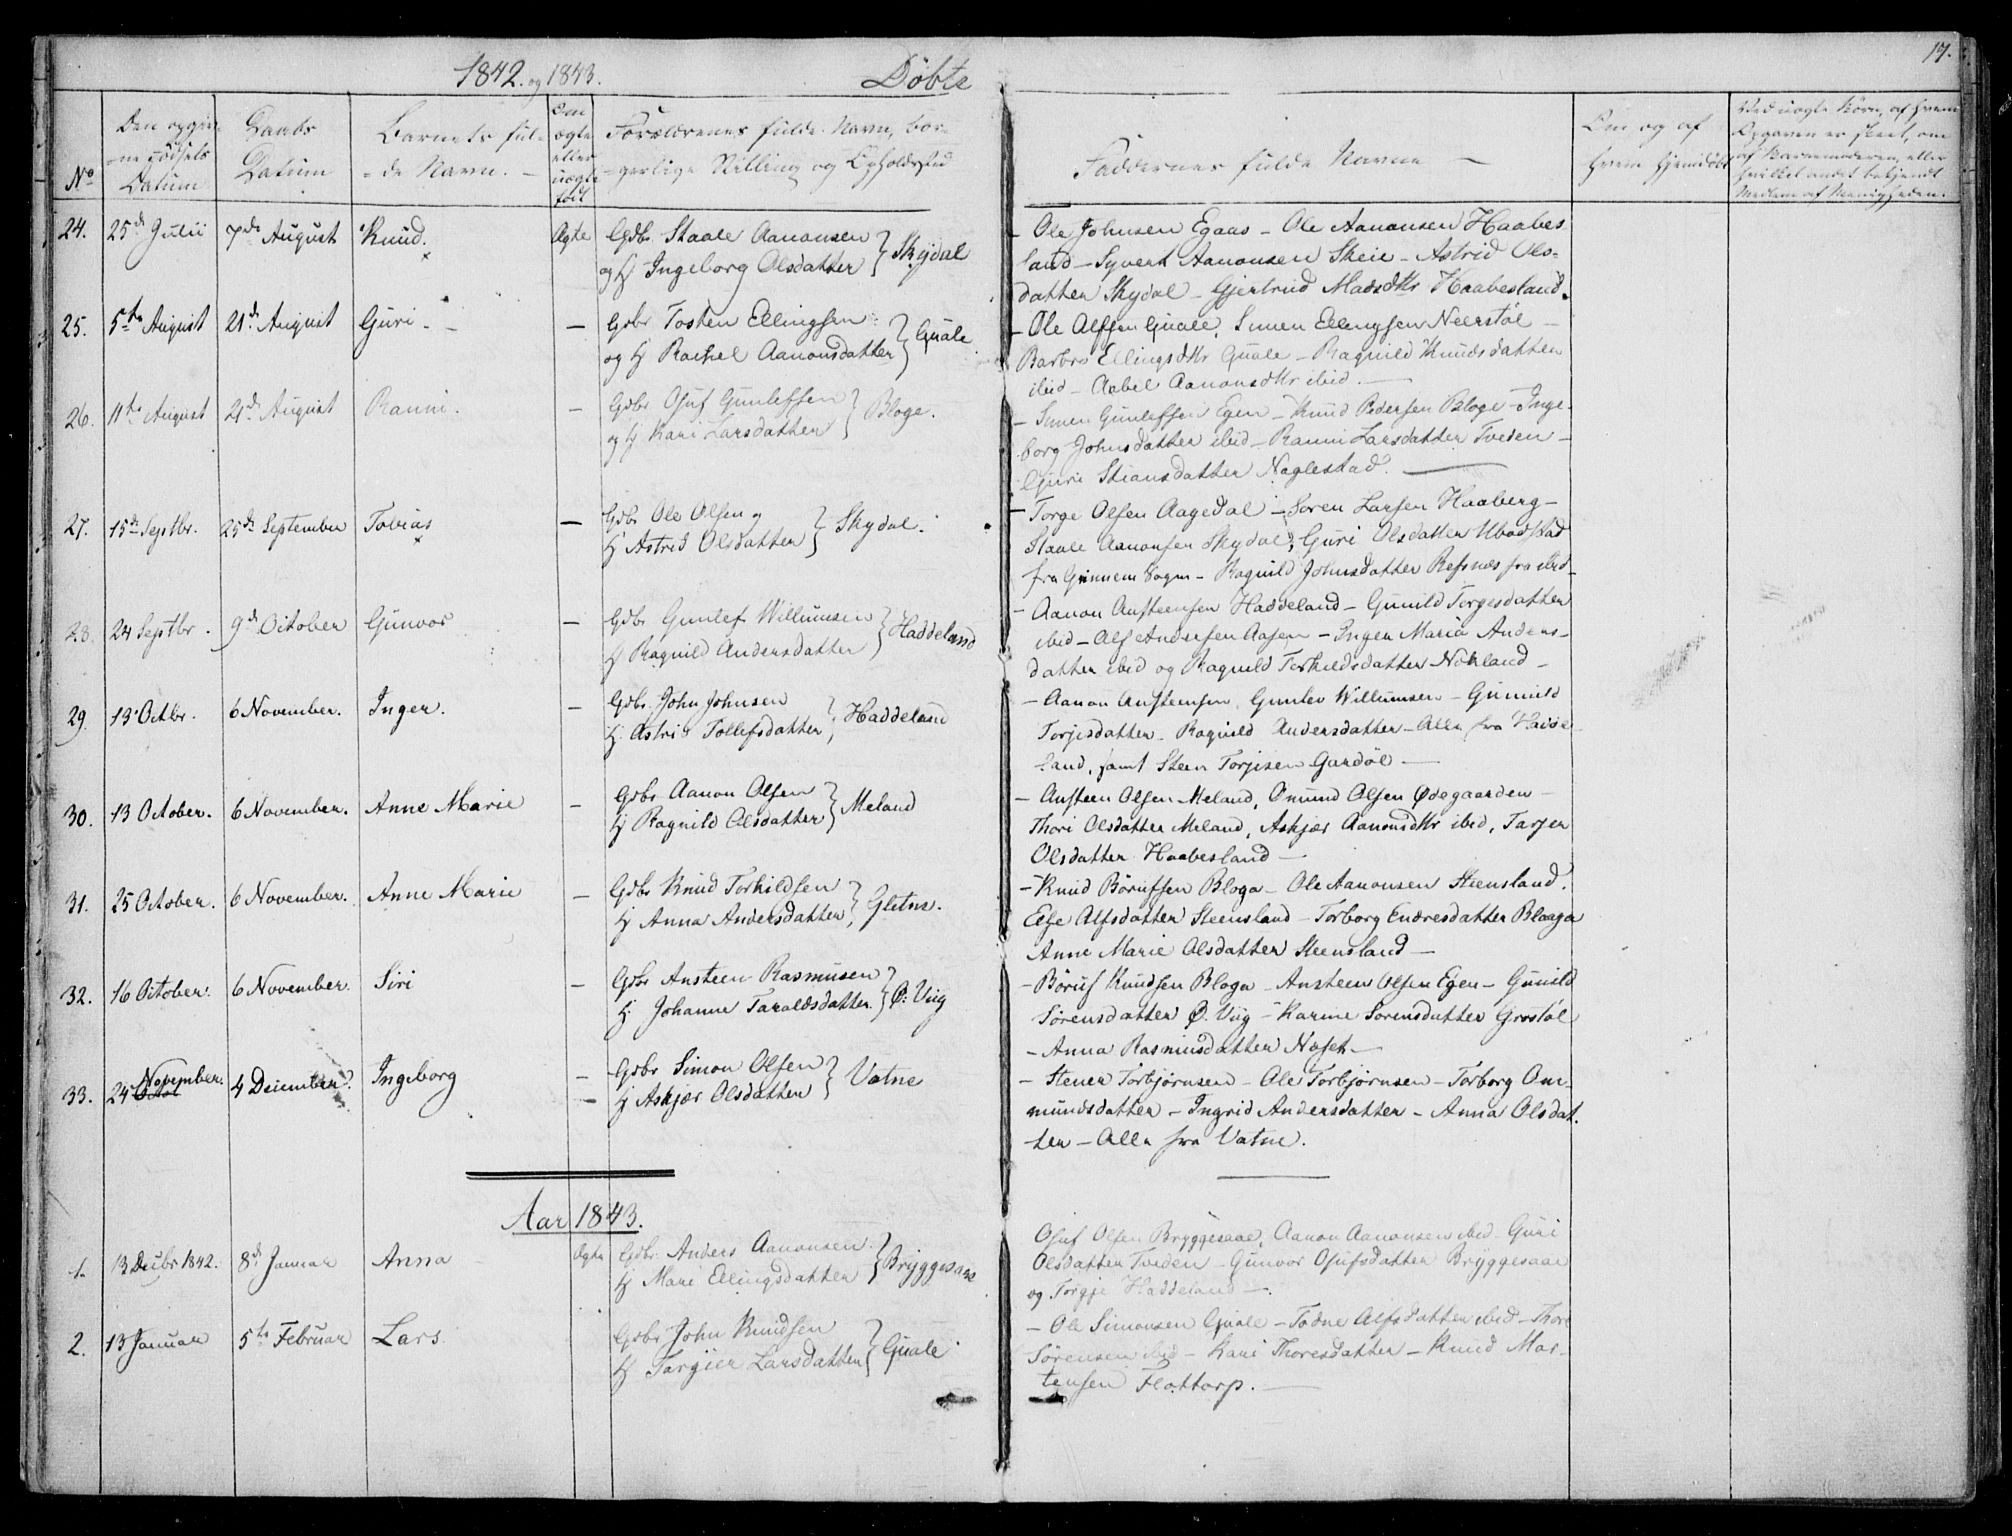 1842. og 1843.
Döbte
17.
No
Den opgiv-
ne Födsels
Datum
Daabs
Datum
Barnets ful-
de Navn.
Om
ægte
eller
uægte
födt
Forældrenes fulde Navn, bor-
gerlige Stilling og Opholdssted
Faddernes fulde Navne
Om og af
hvem hjemdöbt
Ved uægte Börn, af hvem
Opgaven er skeet, om
af Barnemoderen, eller
hvilket andet bekjendt
Medlem af Menigheden.
24. 25de Julii 7de August Knud. Ægte Gdbr. Staale Aanonsen
og H Ingeborg Olsdatter } Skydal
- Ole Johnsen Egaas - Ole Aanonsen Haabes
land - Syvert Aanonsen Skeie - Astrid Ols-
datter Skydal - Gjertrud Madsdttr Haabesland.
25. 5te August 21de August Guri - Gdbr Tosten Ellingsen
og H Rachel Aanonsdatter } Quale
- Ole Alfsen Quale, Simen Ellingsen Neerstöl -
Barbro Ellingsdttr Quale - Ragnild Knudsdatter
ibid - Aabel Aanonsdttr ibid.
26. 11te August 21de August Ranni. - Gdbr Osuf Gunlefsen
og H Kari Larsdatter } Bloge.
- Simen Gunlefsen Egen - Knud Pedersen Bloge - Inge-
borg Johnsdatter ibid - Ranni Larsdatter Tveden -
Guri Stiansdatter Naglestad.
27. 15de Septbr. 25de September Tobias - Gdbr Ole Olsen og
H Astrid Olsdatter } Skydal.
- Torge Olsen Aagedal - Sören Larsen Haaberg -
Staale Aanonsen Skydal, Guri Olsdatter Ubostad
fra Grinnem Sogn - Ragnild Johnsdatter Refsnes fra ibid -
28. 24 Septbr. 9de October Gunvor - Gdbr Gunlef Willumsen
H Ragnild Andersdatter } Haddeland
- Aanon Austeensen Haddeland - Gunild Torgesdatter
ibid - Alf Andersen Aasen - Inger Maria Anders-
datter ibid og Ragnild Torkildsdatter Nokland -
29. 13 Octbr. 6 November. Inger. - Gdbr. John Johnsen
H. Astri Tollefsdatter } Haddeland
- Aanon Austeensen, Gunlev Willumsen - Gunnild
Torjesdatter. Ragnild Andersdatter - Alle fra Hadde
land, samt Steen Torjesen Gardöl -
30. 13 October. 6 November. Anne Marie - Gdbr Aanon Olsen
H Ragnild Olsdatter } Meland
- Austeen Olsen Meland, Omund Olsen Ødegaarden -
Thori Olsdatter Meland, Askjær Aanonsdttr ibid, Tarjer
Olsdatter Haabesland -
31. 25 October. 6 November. Anne Marie - Gdbr Knud Torkildsen
H Anna Andersdatter } Gletne.
- Knud Börufsen Bloga - Ole Aanonsen Steensland.
Else Alfsdatter Steensland - Torborg Endresdatter Blaaga
Anne Marie Olsdatter Steensland -
32. 16 October. 6 November. Siri - Gdbr Austeen Rasmusen
H. Johanne Taraldsdatter } Ø. Viig
- Böruf Knudsen Bloga - Austeen Olsen Egen - Gunild
Sörensdatter Ø. Viig - Karine Sörensdatter Grostöl
- Anna Rasmusdatter Noset -
33. 24 November. Octob 4 December. Ingeborg - Gdbr Simon Olsen
H Askjær Olsdatter } Vatne
- Stener Torbjörnsen - Ole Torbjörnsen - Torborg Om-
mundsdatter - Ingrid Andersdatter - Anna Olsdat.
ter - Alle fra Vatne.
Aar 1843.
1. 13 Decbr 1842. 8de Januar Anna Ægte Gdbr. Anders Aanonsen
H Mari Ellingsdatter } Bryggesaae
Osuf Olsen Bryggesaae, Aanon Aanonsen ibid - Guri
Olsdatter Tveden - Gunvor Osufsdatter Bryggesaae
og Torgje Haddeland -
2. 13 Januar 5te Februar Lars Gdbr John Knudsen
H Targier Larsdatter } Quale
- Ole Simonsen Quale - Todne Alfsdatter ibid - Thore
Sörensen ibid - Kari Thoresdatter - Knud Mor-
tensen Flottorp. -